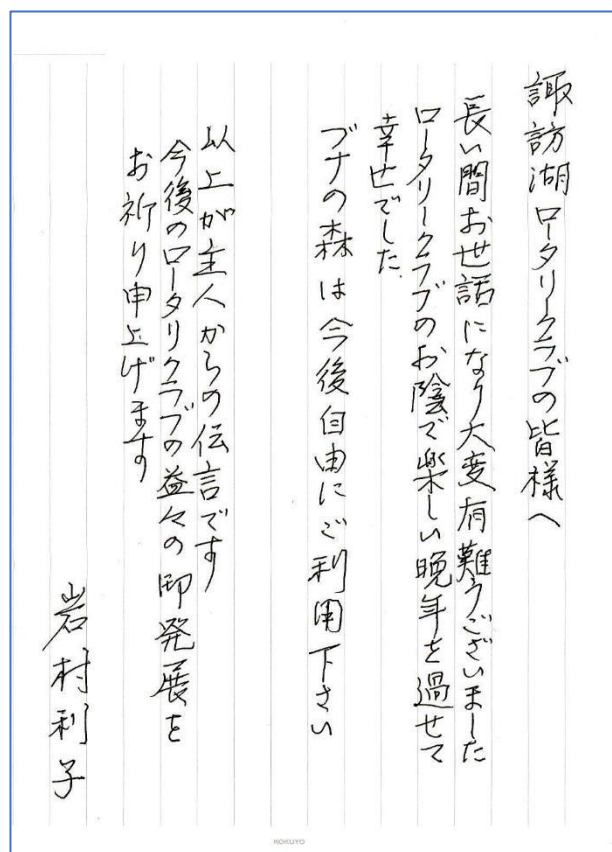 諏訪湖ロータリークラブの皆様へ
長い間お世話になり大変有難うございました
ロータリークラブのお陰で楽しい晩年を過せて
幸せでした
ブナの森は今後自由にご利用下さい
以上が主人からの伝言です
今後のロータリクラブの益々の御発展を
お祈り申上げます
岩村利子
KOKUYO